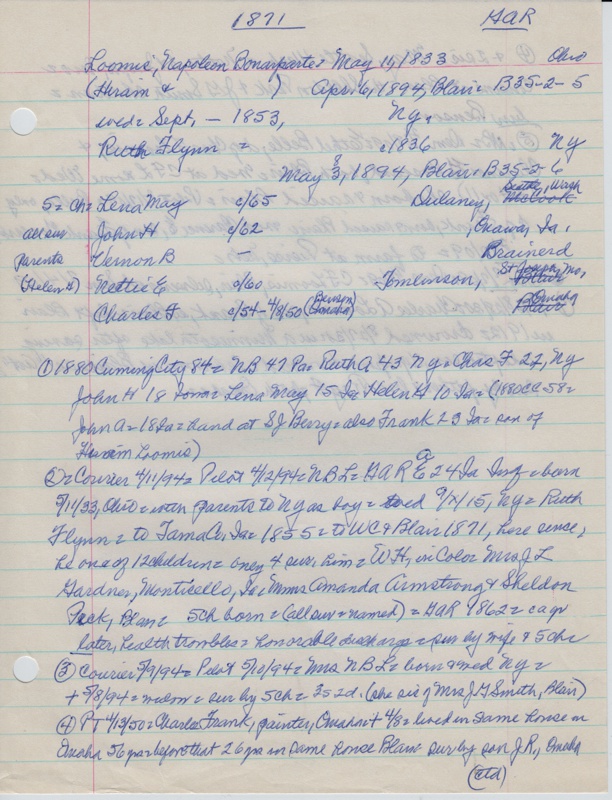 1871 GAR
Loomis, Napoleon Bonaparte = May 11, 1833 Ohio
(Hiram & ) Apr. 6, 1894, Blair = B35-2-5
wed = Sept, — 1853, Ny,
Ruth Flynn = c1836 Ny
May 8, 1894, Blair = B35-2-6
5 = ch = Lena May c/65 Dulaney, Seattle, Wash
all sur John H c/62 Onawa, Ia,
parents Vernon B — Brainerd
(Helen H) Nettie E c/60 Tomlinson, St Joseph, Mo,
Charles F c/54 - 4/8/50 (Benson Omaha) Omaha
① 1880 Cuming City 84 = NB 47 Pa = Ruth A 43 Ny = Chas F 27, Ny
John H 18 Iowa = Lena May 15 Ia = Helen H 10 Ia = (1880 CC 58 =
John A = 18 Ia = hand at SJ Berry = also Frank 23 Ia = son of
Hiram Loomis)
② = Courier 4/11/94 = Pilot 4/12/94 = NBL = GAR Ca E 24 Ia Inf = born
5/11/33, Ohio = with parents to Ny as boy = wed 9/x/15, Ny = Ruth
Flynn = to Tama Co, Ia = 1855 = to WC & Blair 1871, here since,
he one of 12 children = only 4 sur. him = WH, in Colo = Mrs J L
Gardner, Monticello, Ia, Mmes Amanda Armstrong & Sheldon
Peck, Blair = 5 ch born = (all sur = named) = GAR 1862 = ca yr
later, health troubles = honorable discharge = sur by wife & 5 ch =
③ Courier 5/9/94 = Pilot 5/10/94 = Mrs NBL = born & wed Ny =
+ 5/8/94 = widow = sur by 5 ch = 3s 2d. (she sis of Mrs J G Smith, Blair)
④ PT 4/13/50 = Charles Frank, painter, Omaha + 4/8 = lived in same house in
Omaha 56 yrs = before that 26 yrs in same house Blair sur by son J.R., Omaha
(ctd)